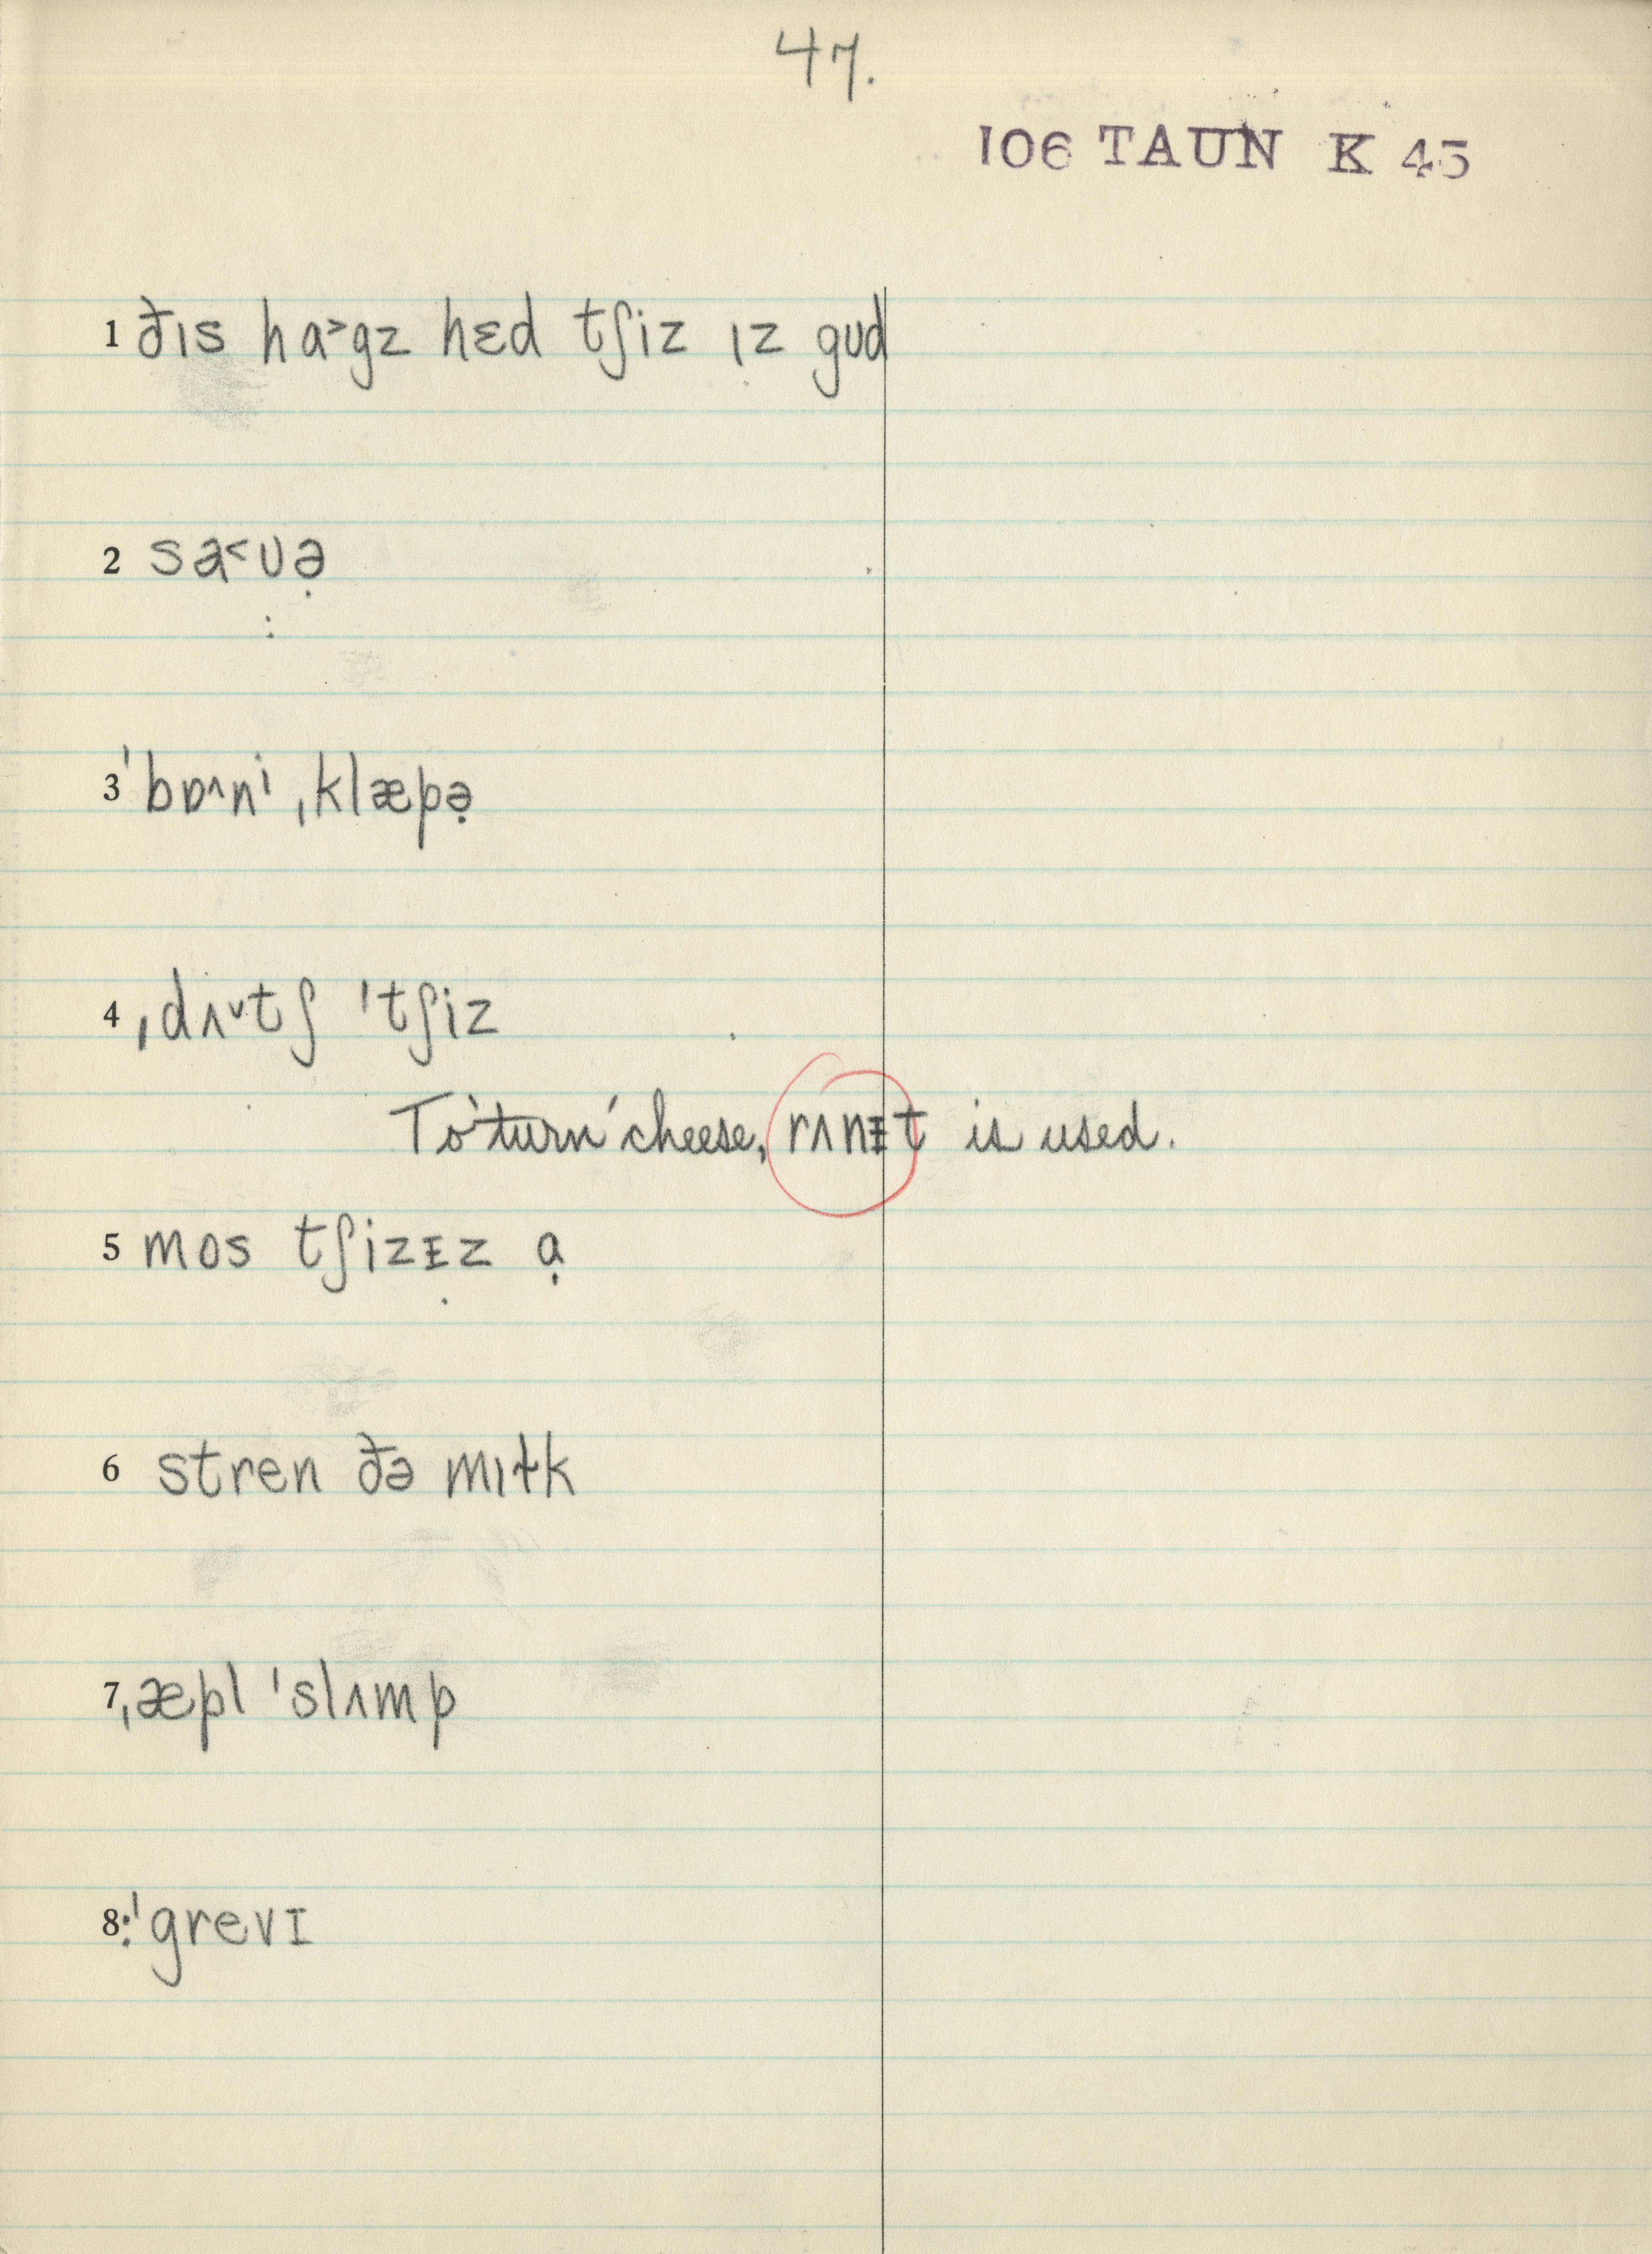 47.
106 TAUN K 45
1 ðɪs hɑ˃gz hɛd tʃiz ɪz gʊd
2 sa˂ʊə̣
3 ˈbɒ˄nˈ ˌklæpə̣
4 ˌdʌ˅tʃ ˈtʃiz
To 'turn' cheese, rʌnᵻt is used.
5 mos tʃizᵻz ɑ̣
6 stren ðə mɪɫk
7 ˌæpl ˈslʌmp
8 :ˈgrevɪ